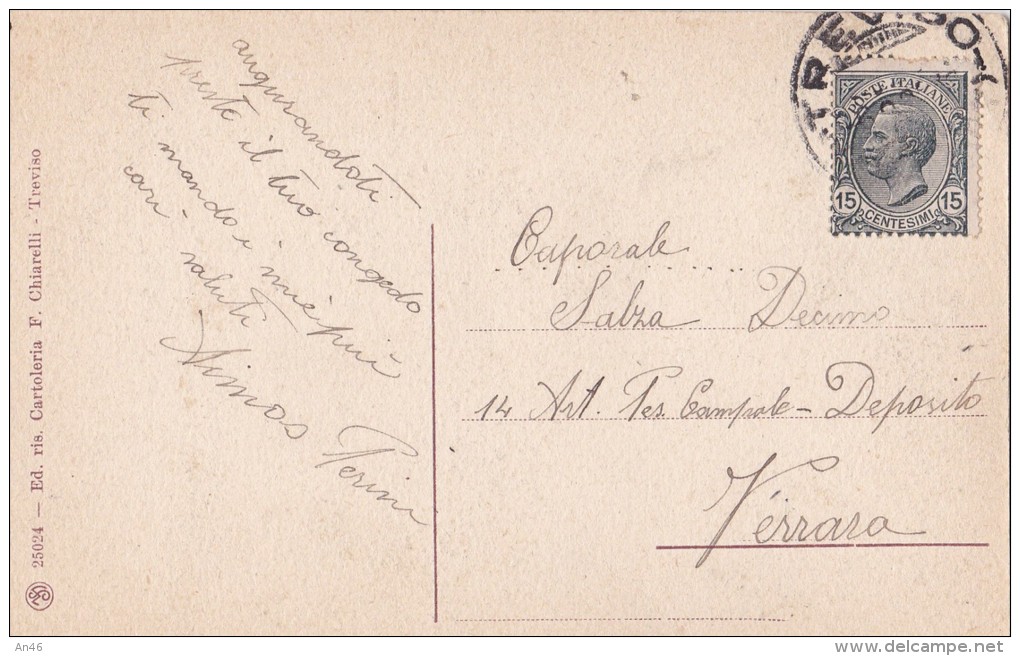 augurandoti
presto il tuo congedo
ti mando i miei più
cari saluti
Mimos Perini
Caporale
Salza Decimo
14 Art. Pes. Campale - Deposito
Ferrara
TREVISO
POSTE ITALIANE
15 15
CENTESIMI
25024 — Ed. ris. Cartoleria F. Chiarelli - Treviso
An46
delcampe.net